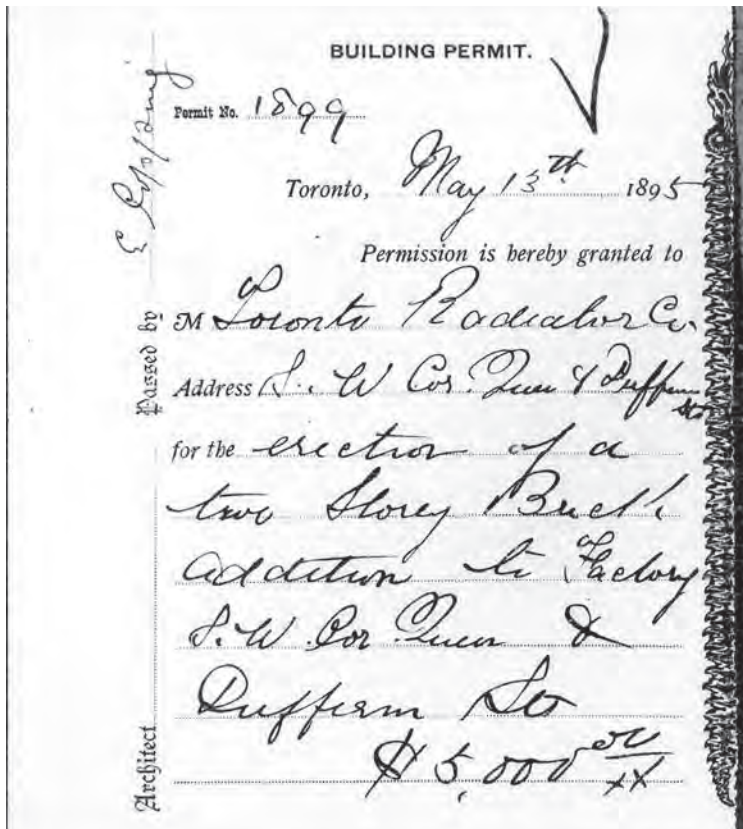 BUILDING PERMIT.
Permit No. 1899
Toronto, May 13th 1895
Permission is hereby granted to
M Toronto Radiator Co.
Address S. W Cor. Queen & Dufferin Sts
for the erection of a
two Storey Brick
addition to Factory
S. W. Cor Queen &
Dufferin Sts
$5,000 00/xx
Passed by E
Architect